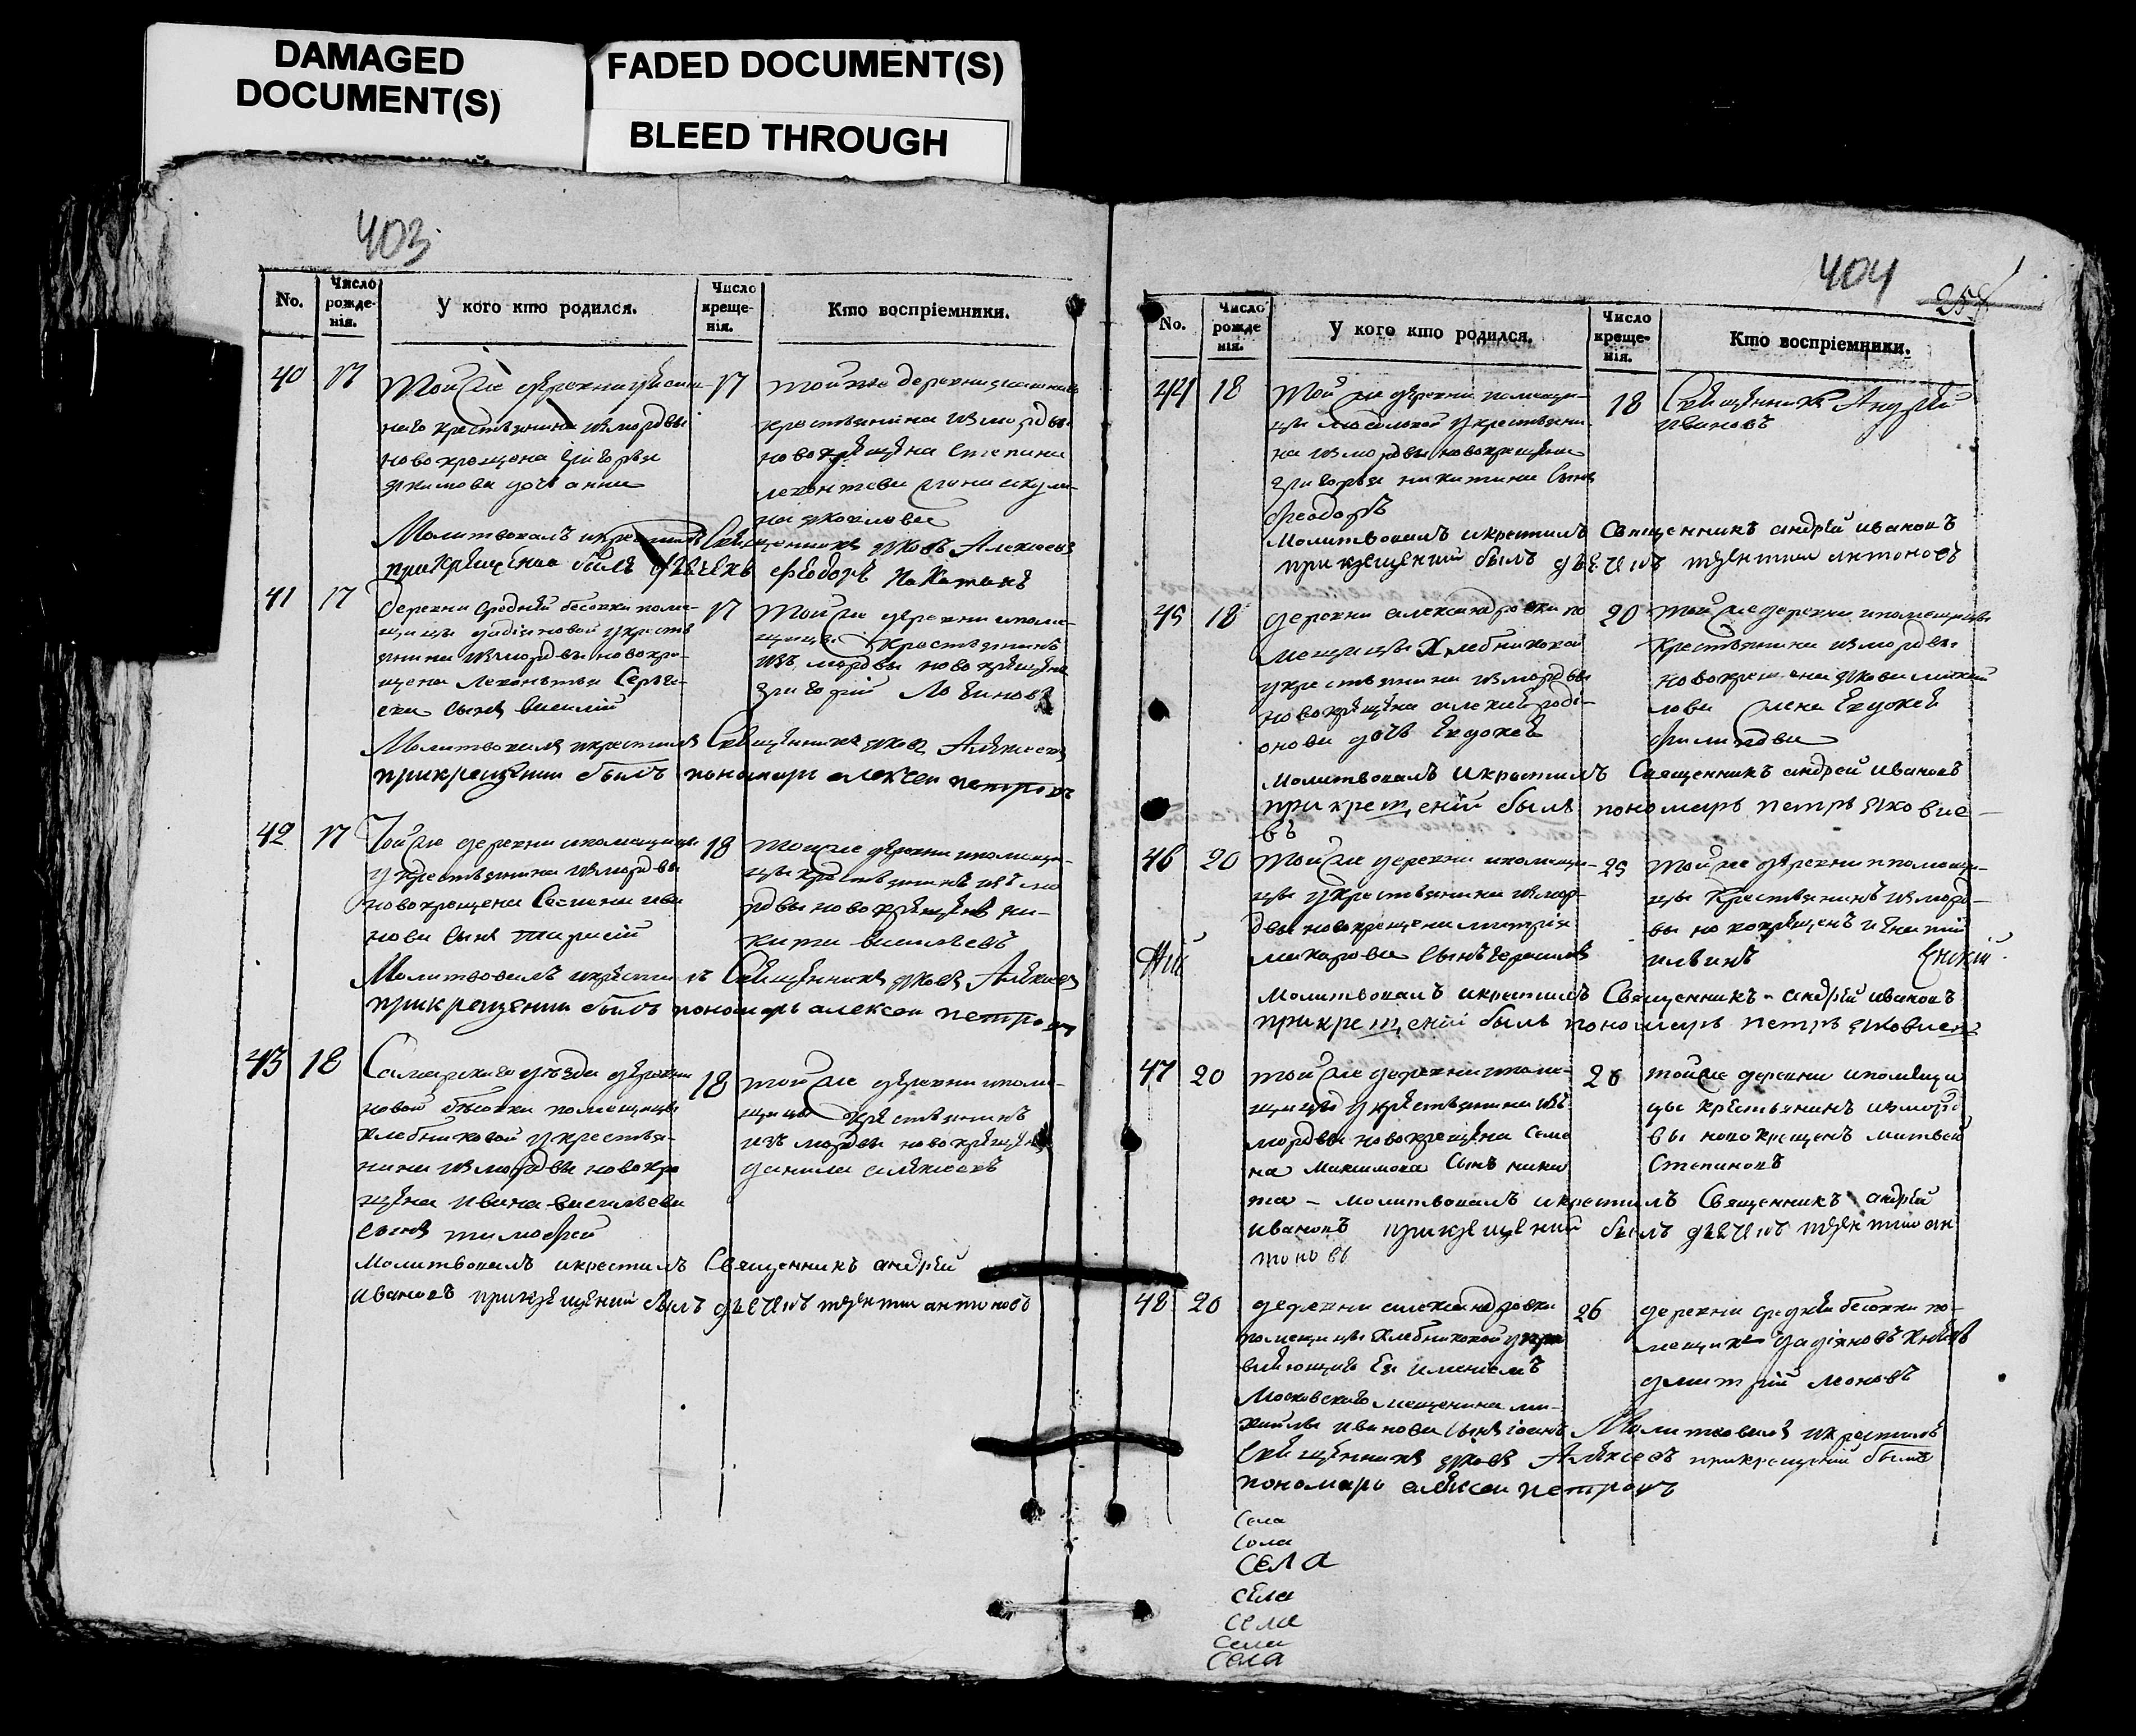 DAMAGED
DOCUMENT(S)
FADED DOCUMENT(S)
BLEED THROUGH
403
No.
Число рожде-нія.
У кого кто родился.
Число креще-нія.
Кто воспріемники.
40 17
Той же деревни
наго крестьянина измордвы
новокрещена Григорья
дочь анна
17
той же деревни
крестьянина измордвы
новокрещена Степана
леонтева жена
яковлева
Молитвовалъ икрестилъ Священникъ яковъ Алексеевъ
прикрещении былъ Феодоръ
41 17
Деревни Средней бесовки поме-
щицы дадіяновой укресть
янина измордвы новокре-
щена Сергее-
ва сынъ василій
17
Той же деревни ипоме-
щицы крестьянинъ
изъ мордвы новокрещенъ
григорій Логиновъ
Молитвовалъ икрестилъ Священникъ яковъ Алексеевъ
прикрещении былъ пономарь алексеи петровъ
42 17
Той же деревни ипомещицы
укрестьянина измордвы
новокрещена Семена ива
нова сынъ
18
той же деревни ипомещи-
цы крестьянинъ изъ мо
рдвы новокрещенъ ни-
кита васильевъ
Молитвовалъ икрестилъ Священникъ яковъ Алексеевъ
прикрещении былъ пономарь алексеи петровъ
43 18
Самарскаго уезда деревни
новой бесовки помещицы
хлебниковой укрестья-
нина измордвы новокре
щена ивана васильева
сынъ тимофей
18
той же деревни ипоме-
щицы крестьянинъ
изъ мордвы новокрещенъ
данила алексеевъ
Молитвовалъ икрестилъ Священникъ андрей
ивановъ прикрещений былъ дьячекъ терентии антоновъ
404
No.
Число рожде нія.
У кого кто родился.
Число креще-нія.
Кто воспріемники.
44 18
Той же деревни помещи-
цы укрестьяни
на измордвы новокрещена
григорья никитина сынъ
Феодоръ
18
Священникъ Андрей
ивановъ
Молитвовалъ икрестилъ Священникъ андрей ивановъ
прикрещений былъ дьячекъ терентии антоновъ
45 18
деревни александровки по
мещицы Хлебниковой
укрестьянина измордвы
новокрещена алексея роди-
онова дочь Евдокея
20
той же деревни ипомещицы
крестьянина измордвы
новокрещена якова михай
лова жена Евдокея
Филипова
Молитвовалъ икрестилъ Священникъ андрей ивановъ
прикрещеній былъ пономарь петръ яковле-
въ
46 20
той же деревни ипомещи-
цы укрестьянина измор-
двы новокрещена митрія
макарова сынъ герасимъ
25
той же деревни ипомещи-
цы крестьянинъ измор-
вы новокрещенъ игнатій
ильинъ
Молитвовалъ икрестилъ Священникъ андрей ивановъ
прикрещеній былъ пономарь петръ яковлевъ
47 20
той же деревни ипоме-
щицы укрестьянина изъ
мордвы новокрещена Семе
на Максимова сынъ ники
26
той же деревни ипомещи
цы крестьянинъ измор
вы новокрещенъ матвей
Степановъ
та - молитвовалъ икрестилъ Священникъ андрей
ивановъ прикрещений былъ дьячекъ терентии ан
тоновъ
48 20
деревни александровки
помещицы Хлебниковой упра
вляющаго Ея имениемъ
Московскаго мещенина ми-
хаилы иванова сынъ іоанъ
26
деревни средней бесовки по-
мещикъ дадіяновъ князь
дмитрій леоновъ
Молитвовалъ икрестилъ
Священникъ яковъ Алексеевъ прикрещеній былъ
пономарь алексеи петровъ
Села
Села
СЕЛА
села
села
села
Села